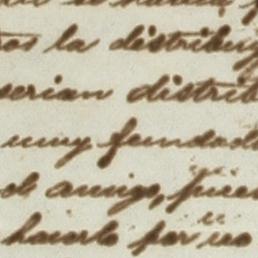 la distribuy
serian distrib
muy fundad
de amigo, pues
hacerlo por no